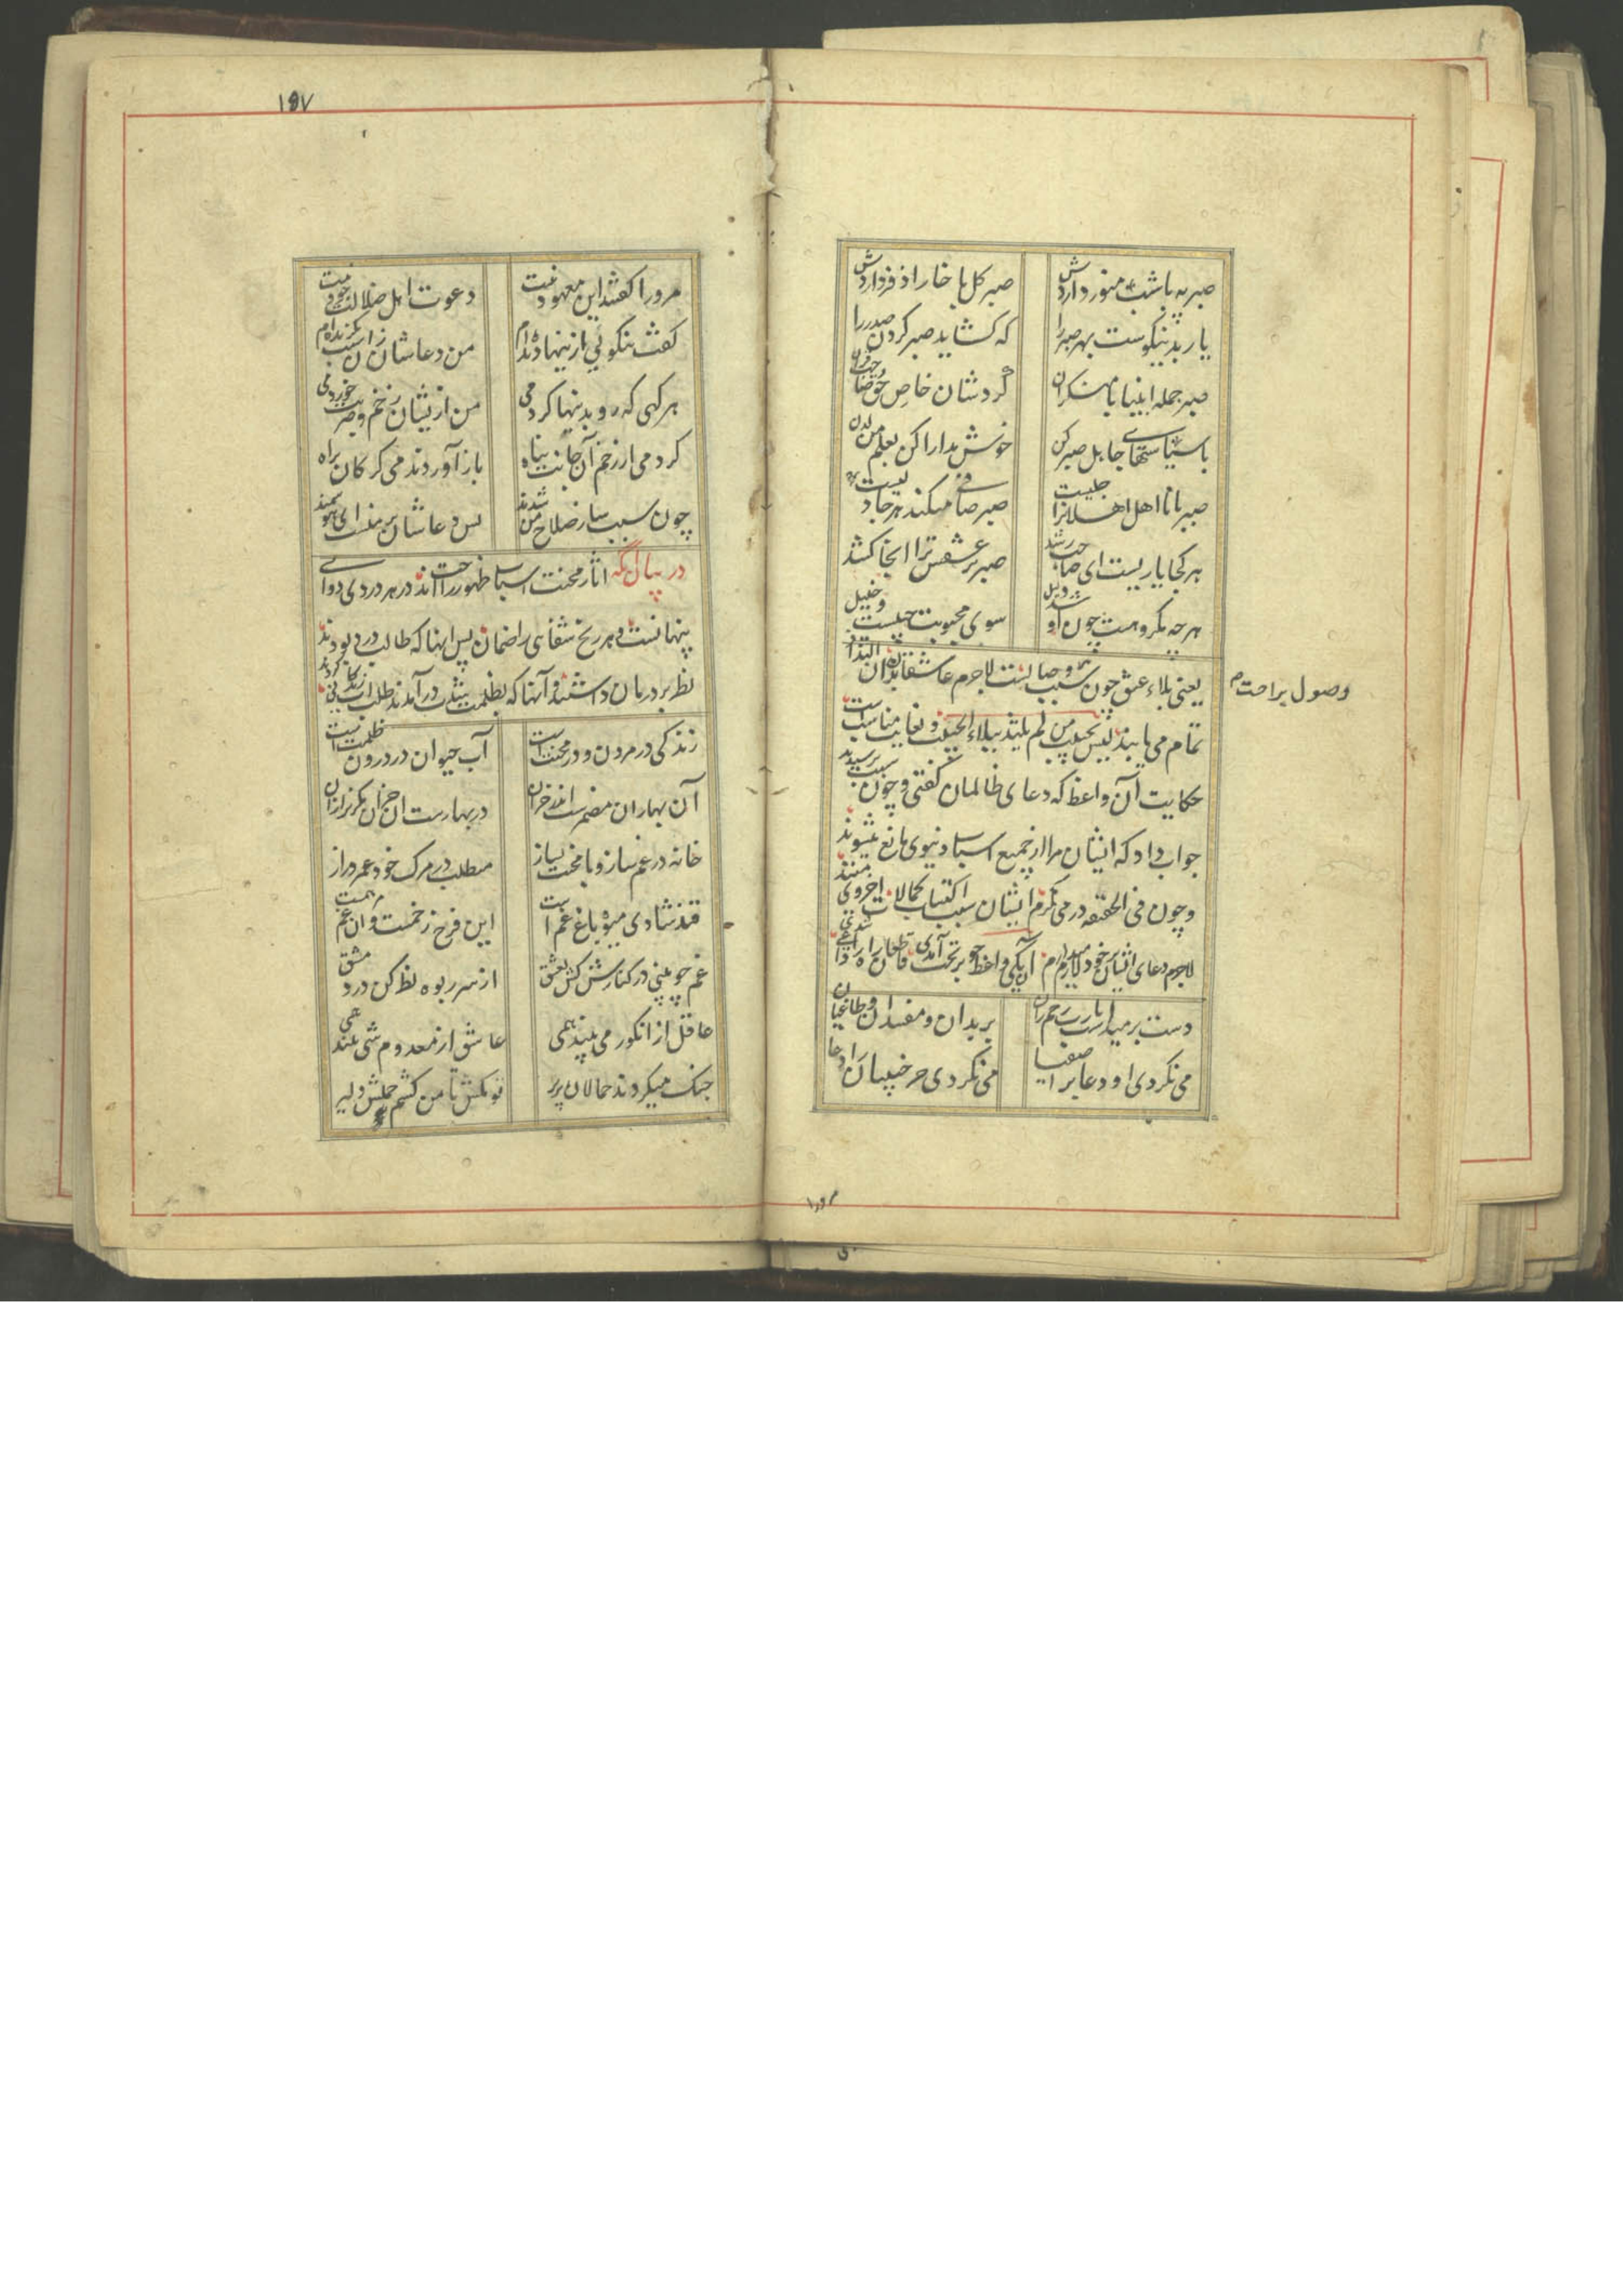 صبر مه با شب منور داردش صبر کل با خار اذفر داردش
یار بد نیکوست بهر صبر را که کشاید صبر کردن صدر را
صبر جمله انبیا با منکران کردشان خاص حق و صاحبقران
با سیاستهای جاهل صبر کن خوش مدارا کن بعلم من لدن
صبر با نااهل اهلانرا جلیست صبر صافی میکند هر جا دلیست
هر کجا یاریست ای صاحب رشد صبر بر عشقش ترا آنجا کشد
هر چه مکروهست چون شد او دلیل سوی محبوبت حبیبست و خلیل
یعنی بلاء عشق چون سبب وصالست لاجرم عاشقانرا بدان التذاذ
وصول براحت
تمام می یابند لیس بمحبوب من لم یلتذ ببلاء الحبیب و بغایت مناسب است
حکایت آن واعظ که دعای ظالمان گفتی و چون سبب پرسیدند
جواب داد که ایشان مرا از جمیع اسباب دنیوی مانع میشوند
و چون فی الحقیقه درمی نگرم ایشان سبب اکتساب کمالات اخروی منند
لاجرم دعای ایشان بر خود لازم دارم آن یکی واعظ چو بر تخت آمدی قاطعان راه را داعی شدی
دست برمیداشت یا رب رحم ران بر بدان و مفسدان و طاغیان
می نکردی او دعا بر اصفیا می نکردی جز خبیثان را دعا
مرورا
۱۵۷
مرورا کفتند این معهود نیست دعوت اهل ضلالت جود نیست
کفت نیکویی ازینها دیده ام من دعاشان زان سبب بگزیده ام
هر کهی که رو بدینها کردمی من ازیشان زخم و ضربت خوردمی
کردمی از زخم آن جانب پناه باز آوردندمی کرکان براه
چون سبب ساز صلاح من شدند پس دعاشان بر منست ای هوشمند
در بیان آنکه آثار محنت اسباب ظهور راحت اند در هر دردی دوایی
پنهانست و هر رنج شفای را ضمان پس اینها که طالب درد بودند
نظر بر درمان داشتند و آنها که بظلمت شدت درآمدند طلب آب زندکانی کردند
زندکی در مردن و در محنت است آب حیوان در درون ظلمت است
آن بهاران مضمرست اندر خزان در بهارست آن خزان مکریز از آن
خانه در غم ساز و با محنت بساز میطلب در مرک خود عمر دراز
قند شادی میوه باغ غم است این فرح زخمست و آن غم مرهمست
غم چو بینی در کنارش کش بعشق از سر ربوه نظر کن در دمشق
عاقل از انکور می بیند همی عاشق از معدوم شی بیند همی
جنک میکردند حمالان پریر تو مکش تا من کشم حملش چو شیر